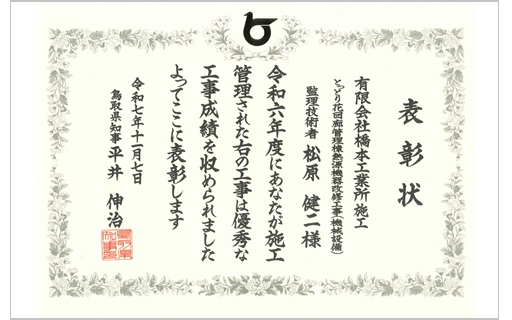 表彰状
有限会社橋本工業所施工
とっとり花回廊管理棟熱源機器改修工事(機械設備)
監理技術者 松原 健二様
令和六年度にあなたが施工
管理された右の工事は優秀な
工事成績を収められました
よってここに表彰します
令和七年十一月七日
鳥取県知事 平井 伸治